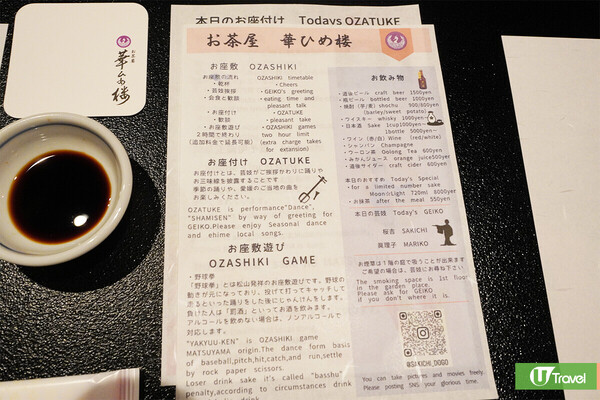 本日のお座付け Todays OZATUKE
お茶屋 華ひめ楼
お茶屋
華ひめ楼
お座敷 OZASHIKI
お座敷の流れ OZASHIKI timetable
・乾杯 ・Cheers
・芸妓挨拶 ・GEIKO's greeting
・会食と歓談 ・eating time and
pleasant talk
・お座付け ・OZATUKE
・歓談 ・pleasant take
・お座敷遊び ・OZASHIKI games
2時間で終わり two hour limit
(追加料金で延長可能) (extra charge takes
for extansion)
お座付け OZATUKE
お座付けとは、芸妓がご挨拶がわりに踊りや
お三味線を披露することです
季節の踊りや、愛媛のご当地の曲を
お楽しみください。
OZATUKE is performance"Dance",
"SHAMISEN" by way of greeting for
GEIKO.Please enjoy Seasonal dance
and ehime local songs.
お座敷遊び
OZASHIKI GAME
・野球拳
「野球拳」とは松山発祥のお座敷遊びです。野球の
動きが元になっており、投げて打ってキャッチして
走るといった踊りをした後にじゃんけんをします。
負けた人は「罰酒」といってお酒を飲みます。
アルコールを飲めない場合は、ノンアルコールで
対応します。
"YAKYUU-KEN" is OZASHIKI game
MATSUYAMA origin.The dance form basis
of baseball,pitch,hit,catch,and run,settle
by rock paper scissors.
Loser drink sake it's called "basshu"
penalty,according to circumstances drink
お飲み物
・道後ビール craft beer 1500yen
・瓶ビール bottled beer 1000yen
・焼酎(芋/麦) shochu 900/800yen
(barley/sweet potato)
・ウイスキー whisky 1000yen~
・日本酒 Sake 1cup1000yen~
1bottle 5000yen~
・ワイン(赤/白) Wine (red/white)
・シャンパン Champagne
・ウーロン茶 Oolong Tea 600yen
・みかんジュース orange juice500yen
・道後サイダー craft cider 600yen
本日のおすすめ Today's Special
・for a limited number sake
Moon☆Light 720ml 8000yen
・お抹茶 after the meal 550yen
本日の芸妓 Today's GEIKO
桜吉 SAKICHI
眞理子 MARIKO
お煙草は1階の庭で吸うことが出来ます
ご希望の場合は、芸妓にお尋ね下さい
The smoking space is 1st floor
in the garden place.
Please ask for GEIKO
if you don't where it is.
@SAKICHI_DOGO
You can take pictures and movies freely.
Please posting SNS your glorious time.
U Travel